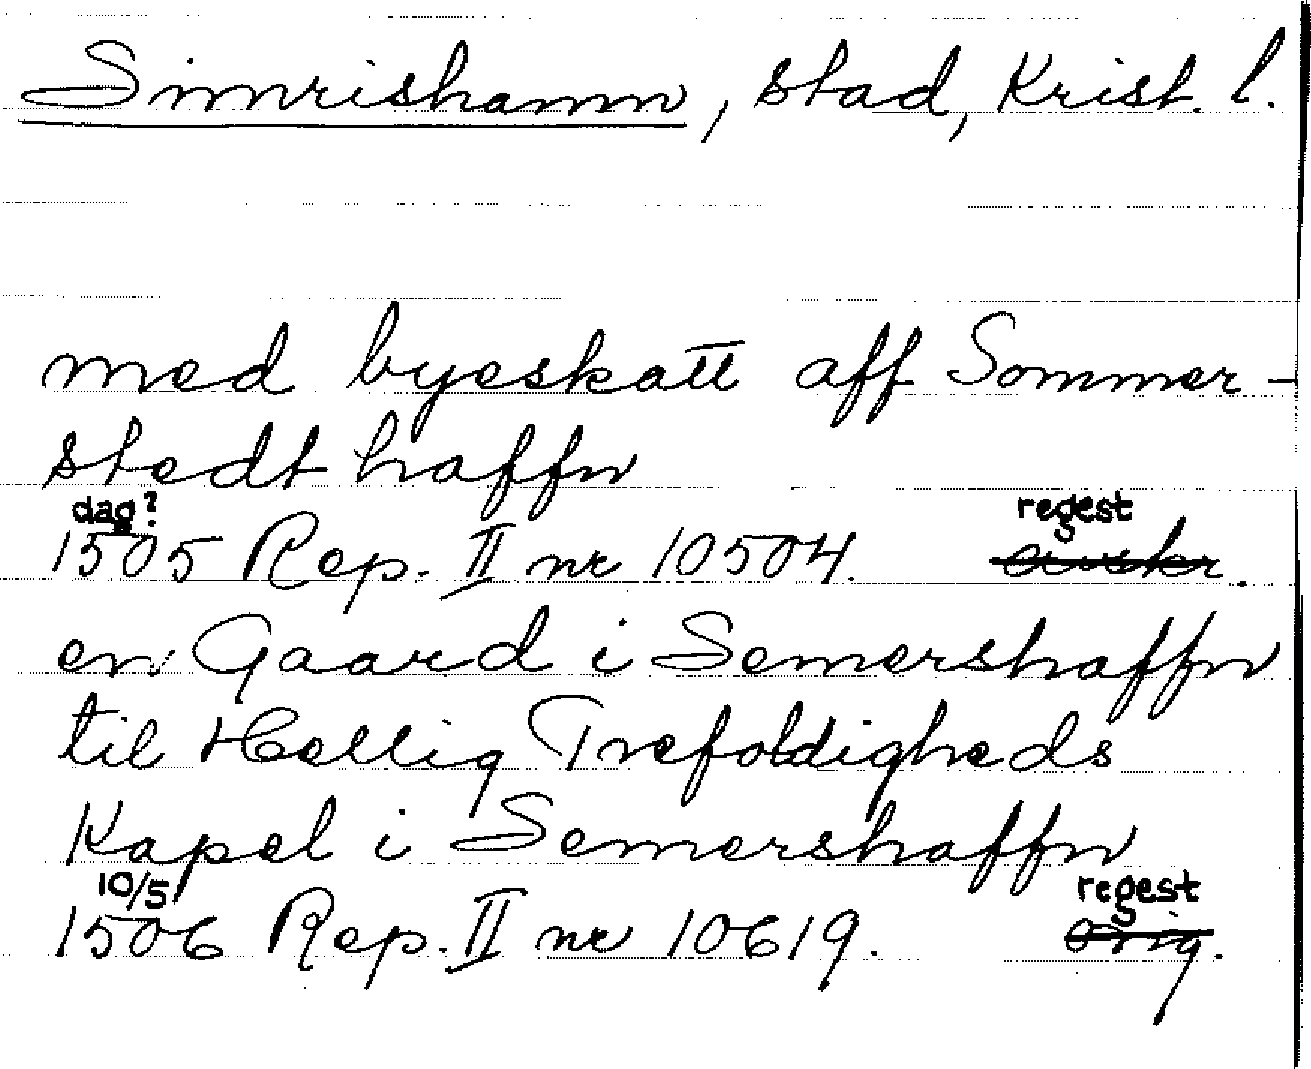 Simrishamn, stad, Krist. l.
med byeskatt aff Sommer-
stedt haffn
dag?
1505 Rep. II nr 10504. regest
avskr.
en Gaard i Semershaffn
til Hellig Trefoldigheds
Kapel i Semershaffn
10/5
1506 Rep. II nr 10619. regest
orig.